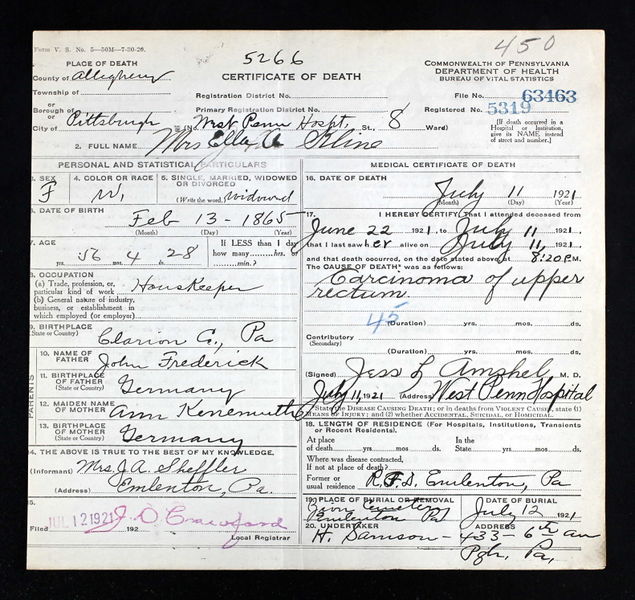 450
Form V. S. No. 5—50M—7-30-20.
5266
PLACE OF DEATH
CERTIFICATE OF DEATH
COMMONWEALTH OF PENNSYLVANIA
DEPARTMENT OF HEALTH
BUREAU OF VITAL STATISTICS
County of Allegheny
Township of
or
Borough of
or
City of Pittsburgh
Registration District No.
File No. 63463
Primary Registration District No.
Registered No. 5319
No. West Penn Hospt. St., 8 Ward)
[If death occurred in a Hospital or Institution, give its NAME, instead of street and number.]
2. FULL NAME Mrs Ella A Kline
PERSONAL AND STATISTICAL PARTICULARS
3. SEX F
4. COLOR OR RACE W.
5. SINGLE, MARRIED, WIDOWED OR DIVORCED
(Write the word) Widowd
6. DATE OF BIRTH
Feb 13 - 1865
(Month) (Day) (Year)
7. AGE
56 yrs. 4 mos. 28 ds.
If LESS than 1 day how many hrs. or min.?
8. OCCUPATION
(a) Trade, profession, or particular kind of work Houskeeper
(b) General nature of industry, business, or establishment in which employed (or employer)
9. BIRTHPLACE
(State or Country) Clarion Co., Pa
PARENTS
10. NAME OF FATHER John Frederick
11. BIRTHPLACE OF FATHER
(State or Country) Germany
12. MAIDEN NAME OF MOTHER Ann
13. BIRTHPLACE OF MOTHER
(State or Country) Germany
14. THE ABOVE IS TRUE TO THE BEST OF MY KNOWLEDGE.
(Informant) Mrs. J. A. Sheffler
(Address) Emlenton, Pa.
15.
Filed JUL 12 1921 192 J. D. Crawford
Local Registrar
MEDICAL CERTIFICATE OF DEATH
16. DATE OF DEATH
July 11 1921
(Month) (Day) (Year)
17. I HEREBY CERTIFY, That I attended deceased from
June 22 1921, to July 11 1921
that I last saw her alive on July 11, 1921
and that death occurred, on the date stated above at 8:20 P.M.
The CAUSE OF DEATH* was as follows:
Carcinoma of upper
rectum.
45
(Duration) yrs. mos. ds.
Contributory
(Secondary)
(Duration) yrs. mos. ds.
(Signed) Jess L Amshel, M. D.
July 11, 1921 (Address) West Penn Hospital
*State the DISEASE CAUSING DEATH; or in deaths from VIOLENT CAUSES, state (1) MEANS OF INJURY; and (2) whether ACCIDENTAL, SUICIDAL, or HOMICIDAL.
18. LENGTH OF RESIDENCE (For Hospitals, Institutions, Transients or Recent Residents).
At place of death yrs. mos. ds.
In the State yrs. mos. ds.
Where was disease contracted,
If not at place of death?
Former or usual residence R.F.D. Emlenton, Pa
19. PLACE OF BURIAL OR REMOVAL
Cemetery
Emlenton Pa
DATE OF BURIAL
July 12 1921
20. UNDERTAKER
H. Samson
ADDRESS
433 - 6th av
Pgh, Pa,